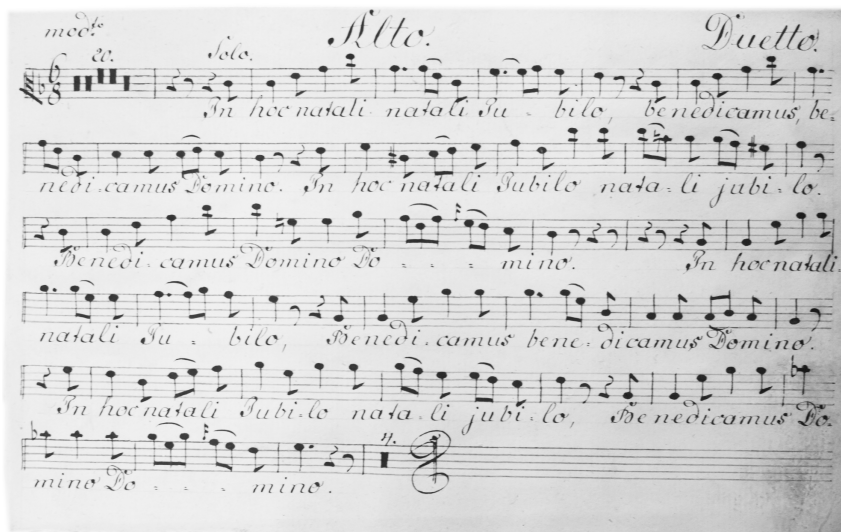 modto. Alto. Duetto.
20. Solo.
6 8
In hoc natali natali Ju - bilo, benedicamus, be=
nedi=camus Domino. In hoc natali Jubilo nata=li jubi=lo.
Benedi=camus Domino Do - - - mino. In hoc natali
natali Ju - bilo, Benedi=camus bene=dicamus Domino.
In hoc natali Jubi=lo nata=li jubi=lo, Benedicamus Do.
4.
mino Do - - - mino.